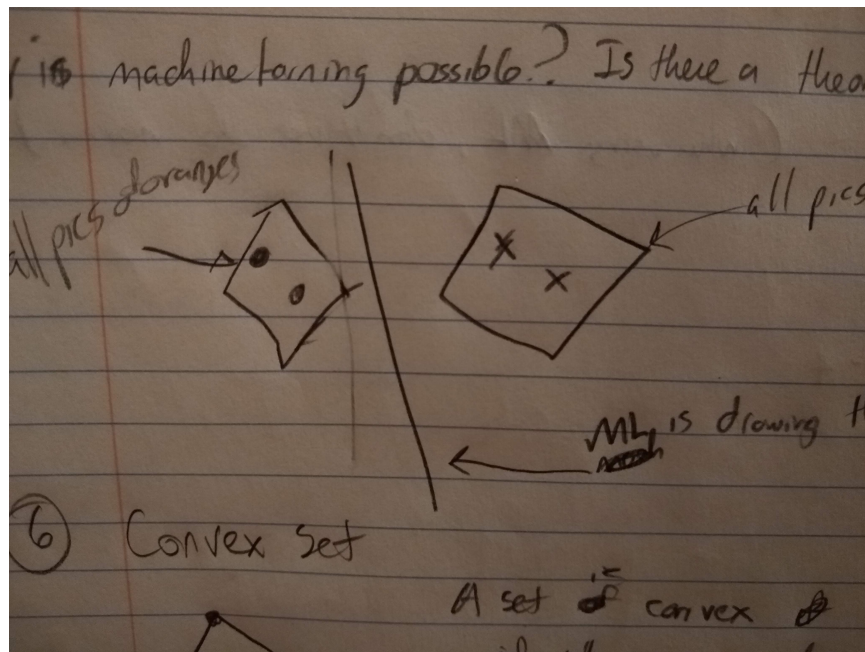 is machine learning possible? Is there a
all pics of oranges
all pics
ML is drawing
6 Convex set
A set is convex